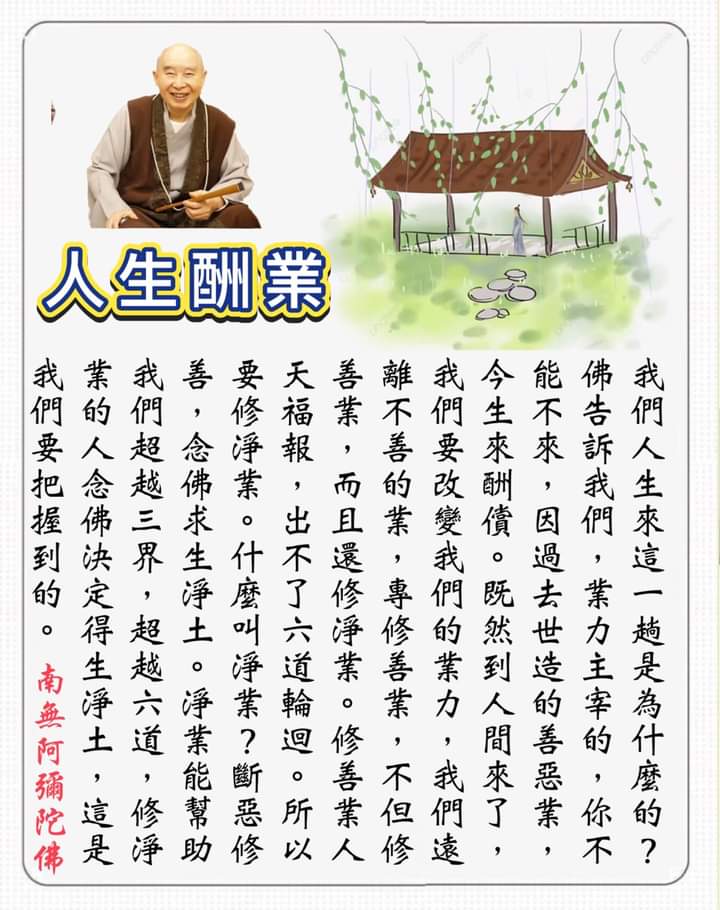 人生酬業
我們人生來這一趟是為什麼的？
佛告訴我們，業力主宰的，你不
能不來，因過去世造的善惡業，
今生來酬償。既然到人間來了，
我們要改變我們的業力，我們遠
離不善的業，專修善業，不但修
善業，而且還修淨業。修善業人
天福報，出不了六道輪迴。所以
要修淨業。什麼叫淨業？斷惡修
善，念佛求生淨土。淨業能幫助
我們超越三界，超越六道，修淨
業的人念佛決定得生淨土，這是
我們要把握到的。南無阿彌陀佛